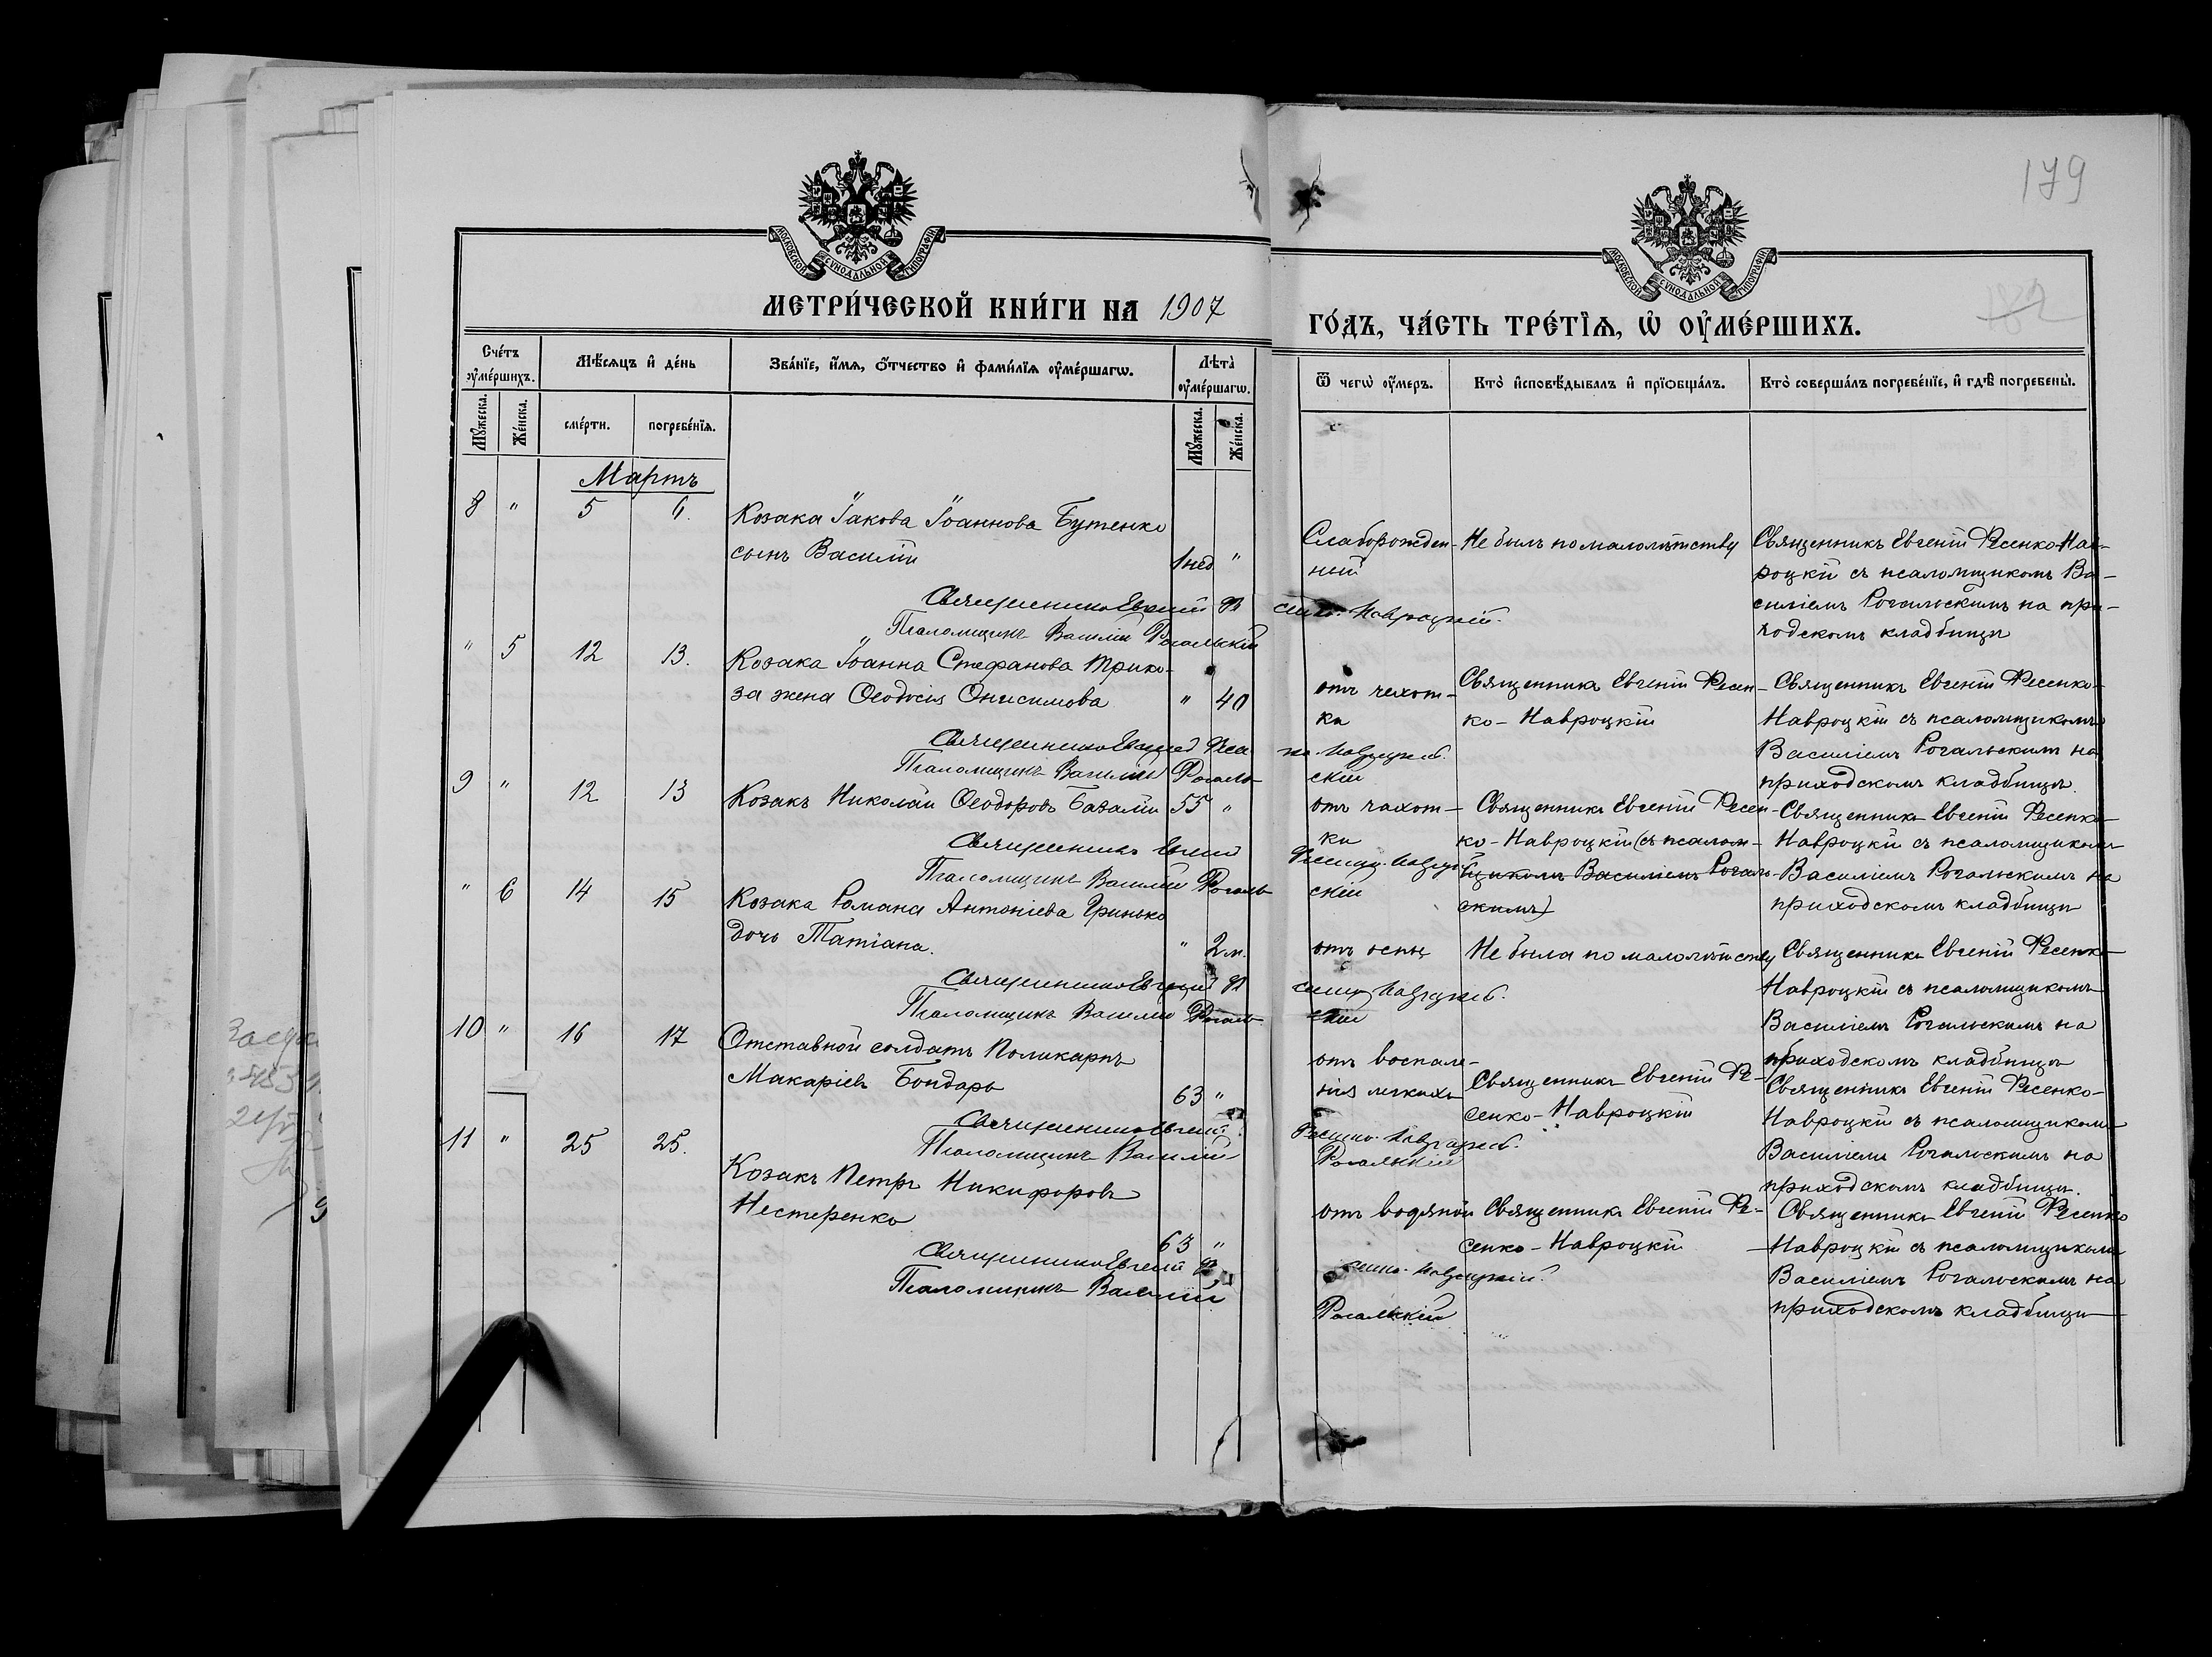 179
МОСКОВСКОЙ СѴНОДАЛЬНОЙ ТИПОГРАФІИ
МОСКОВСКОЙ СѴНОДАЛЬНОЙ ТИПОГРАФІИ
МЕТРИ́ЧЕСКОЙ КНИ́ГИ НА 1907
ГО́ДЪ, ЧА́СТЬ ТРЕ́ТІѦ, Ѡ ОУМЕ́РШИХЪ.
182
Сче́тъ оумершихъ.
Мѣсяцъ и де́нь
Зва́нїе, и́мя, о́тчество и фами́лїя оуме́ршагѡ.
Лѣта̀ оуме́ршагѡ.
Ѿ чегѡ̀ оу́меръ.
Кто̀ исповѣ́дывалъ и прїобща́лъ.
Кто̀ соверша́лъ погребе́нїе, и гдѣ̀ погребены̀.
Мꙋжеска.
Же́нска.
сме́рти.
погребе́нїя.
Мꙋжеска.
Же́нска.
Мартъ
8 " 5 6.
Козака Іакова Іоаннова Бутенко
сынъ Василій
1 нед "
Слаборожден-
ный
Не былъ по малолѣтству
Священникъ Евгеній Фесенко-Нав-
роцкій съ псаломщикомъ Ва-
силіемъ Рогальскимъ на при-
ходскомъ кладбищѣ
Священникъ Евгеній Фесенко-Навроцкій.
Псаломщикъ Василій Рогальскій
" 5 12 13.
Козака Іоанна Стефанова Трико-
за жена Ѳеодосія Онисимова
" 40
отъ чахот-
ки
Священникъ Евгеній Фесен-
ко-Навроцкій
Священникъ Евгеній Фесенко-
Навроцкій съ псаломщикомъ
Василіемъ Рогальскимъ на
приходскомъ кладбищѣ.
Священникъ Евгеній Фесенко-Навроцкій.
Псаломщикъ Василій Рогальскій
9 " 12 13
Козакъ Николай Ѳеодоровъ Базалій
55 "
отъ чахот-
ки
Священникъ Евгеній Фесен-
ко-Навроцкій (съ псалом-
щикомъ Василіемъ Рогаль-
скимъ)
Священникъ Евгеній Фесенко-
Навроцкій съ псаломщикомъ
Василіемъ Рогальскимъ на
приходскомъ кладбищѣ
Священникъ Евгеній Фесенко-Навроцкій
Псаломщикъ Василій Рогальскій
" 6 14 15
Козака Романа Антоніева Гринько
дочь Татіана.
" 2 м.
отъ оспы
Не была по малолѣтству
Священникъ Евгеній Фесенко-
Навроцкій съ псаломщикомъ
Василіемъ Рогальскимъ на
приходскомъ кладбищѣ
Священникъ Евгеній Фесенко-Навроцкій.
Псаломщикъ Василій Рогальскій
10 " 16 17
Отставной солдатъ Поликарпъ
Макаріевъ Бондарь
63 "
отъ воспале-
нія легкихъ
Священникъ Евгеній Фе-
сенко-Навроцкій
Священникъ Евгеній Фесенко-
Навроцкій съ псаломщикомъ
Василіемъ Рогальскимъ на
приходскомъ кладбищѣ.
Священникъ Евгеній Фесенко-Навроцкій.
Псаломщикъ Василій Рогальскій
11 " 25 25.
Козакъ Петръ Никифоровъ
Нестеренко
63 "
отъ водяной
Священникъ Евгеній Фе-
сенко-Навроцкій
Священникъ Евгеній Фесенко-
Навроцкій съ псаломщикомъ
Василіемъ Рогальскимъ на
приходскомъ кладбищѣ
Священникъ Евгеній Фесенко-Навроцкій.
Псаломщикъ Василій Рогальскій